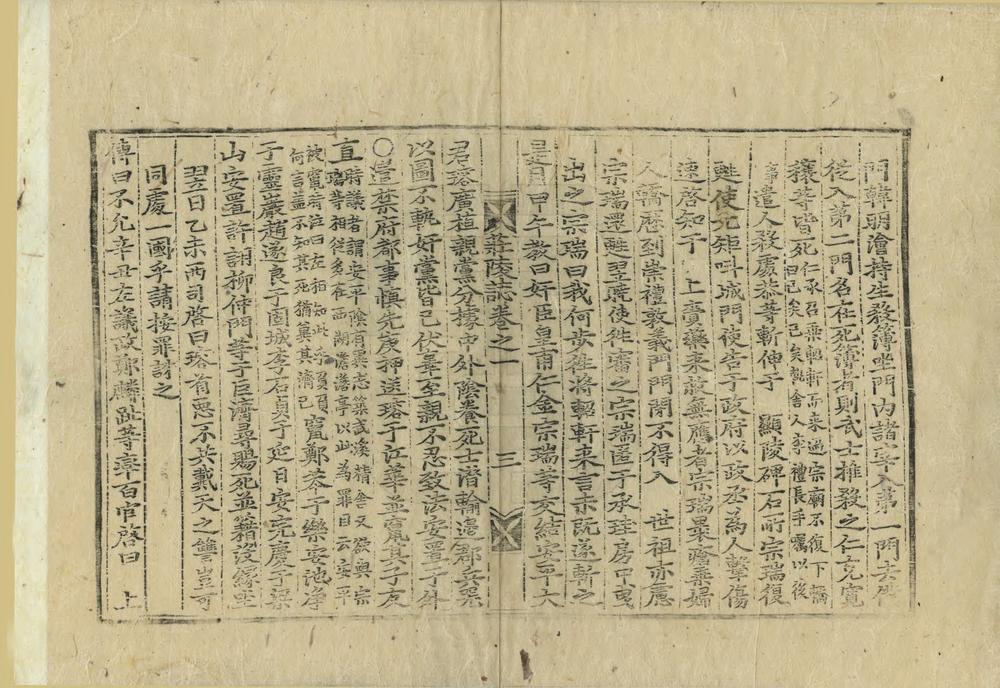 門韓明澮持生殺簿坐門內諸宰入第一門去
從入第二門名在死簿者則武士椎殺之仁克寬
穰等皆死仁承召乘軺軒而來過宗廟不復下軺
曰已矣已矣執舍人李禮長手囑以後
事遣人殺處恭等斬俾于 顯陵碑石所宗瑞復
甦使元矩呌城門使告于政府以政丞爲人擊傷
速啓知于 上賫藥來救無應者宗瑞裹瘡乘婦
人轎歷到崇禮敦義門門閉不得入 世祖亦慮
宗瑞還甦翌荒使徃審之宗瑞匿于承珪房中曳
出之宗瑞曰我何步徃將軺軒來言未旣遂斬之
是日甲午敎曰奸臣皇甫仁金宗瑞等交結安平大
莊陵誌卷之一
三
君瑢廣植親黨分據中外陰養死士潛輸邊郡兵器
以圖不軌奸黨皆已伏辜至親不忍致法安置于外
〇義禁府都事愼先庚押送瑢于江華並竄其子友
直時議者謂安平陰有異志築武溪精舍又欲與宗
瑞等相從多在西湖澹澹亭以此爲罪目云安平
被竄府
何言蓋不知其死猶冀其濟己
竄鄭苯于樂安池淨
于靈巖趙遂良于固城李石貞于延日安完慶于梁
山安置許詡柳仲門等于巨濟尋賜死並籍沒緣坐
翌日乙未兩司啓曰瑢有惡不共戴天之讎豈可
同處一國乎請按罪誅之
傳曰不允辛丑左議政鄭麟趾等率百官啓曰 上